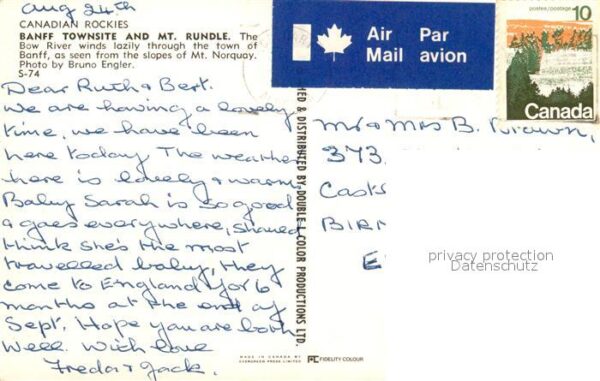 Aug 24th
CANADIAN ROCKIES
BANFF TOWNSITE AND MT. RUNDLE. The
Bow River winds lazily through the town of
Banff, as seen from the slopes of Mt. Norquay.
Photo by Bruno Engler.
S-74
Dear Ruth & Bert.
We are having a lovely
time, we have been
here today The weather
here is lovely & warm,
Baby Sarah is so good
& goes everywhere, should
think she's the most
travelled baby, they
come to England for 6
months at the end of
Sept. Hope you are both
well. With love
Freda & Jack.
HED & DISTRIBUTED BY DOUBLE L COLOR PRODUCTIONS LTD.
MADE IN CANADA BY
EVERGREEN PRESS LIMITED
FIDELITY COLOUR
Air Par
Mail avion
postes/postage 10
Canada
Mr & Mrs B. Brown,
373
Cast
BIR
E
privacy protection
Datenschutz